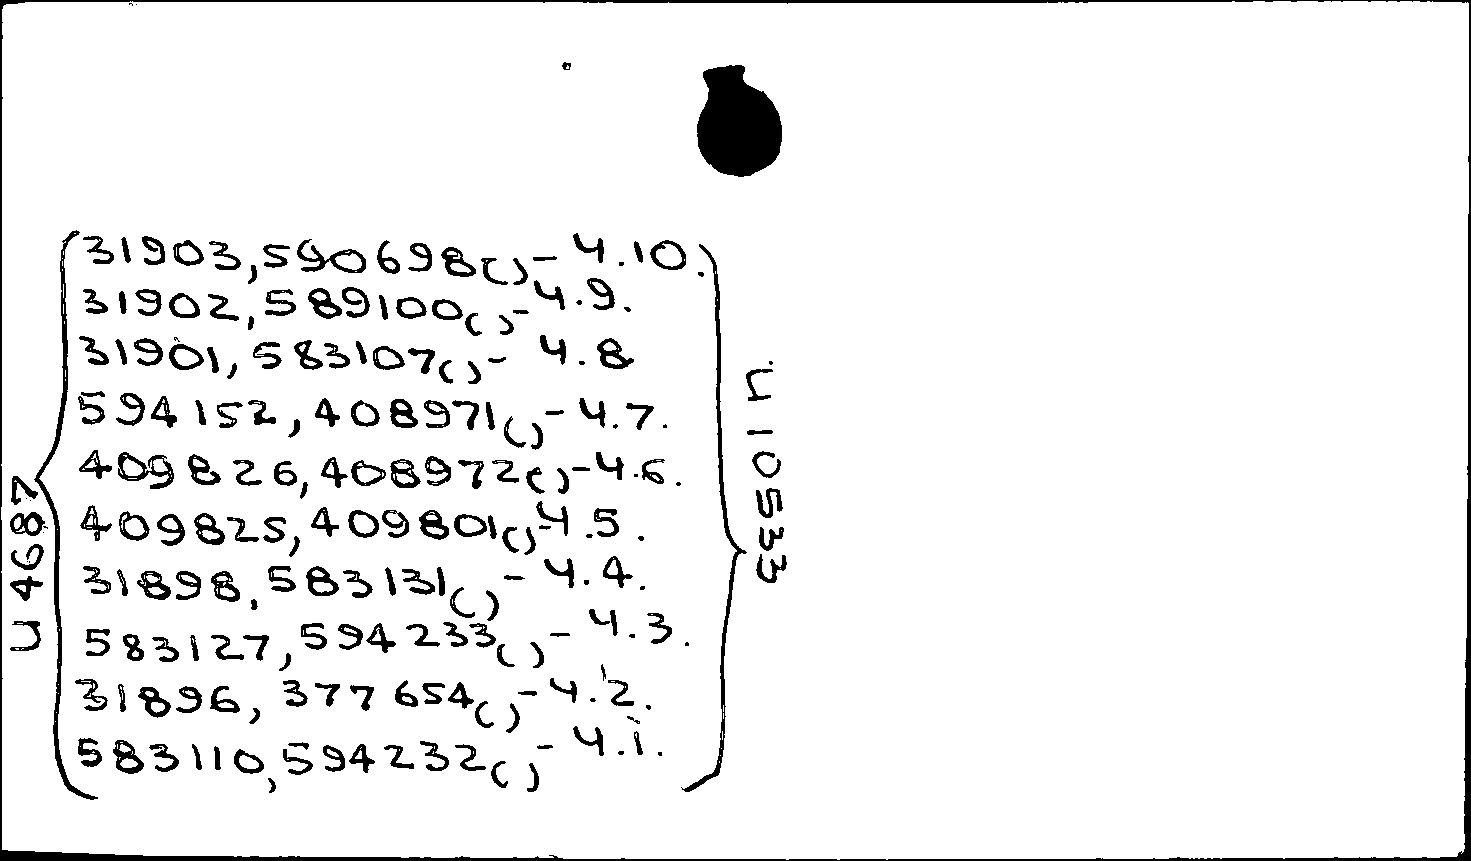 31903,590698()-Ч.10.
31902,589100()-Ч.9.
31901,583107()-Ч.8
594152,408971()-Ч.7.
409826,408972()-Ч.6.
409825,409801()-Ч.5.
31898,583131()-Ч.4.
583127,594233()-Ч.3.
31896,377654()-Ч.2.
583110,594232()-Ч.1.
И 4687
И 10533